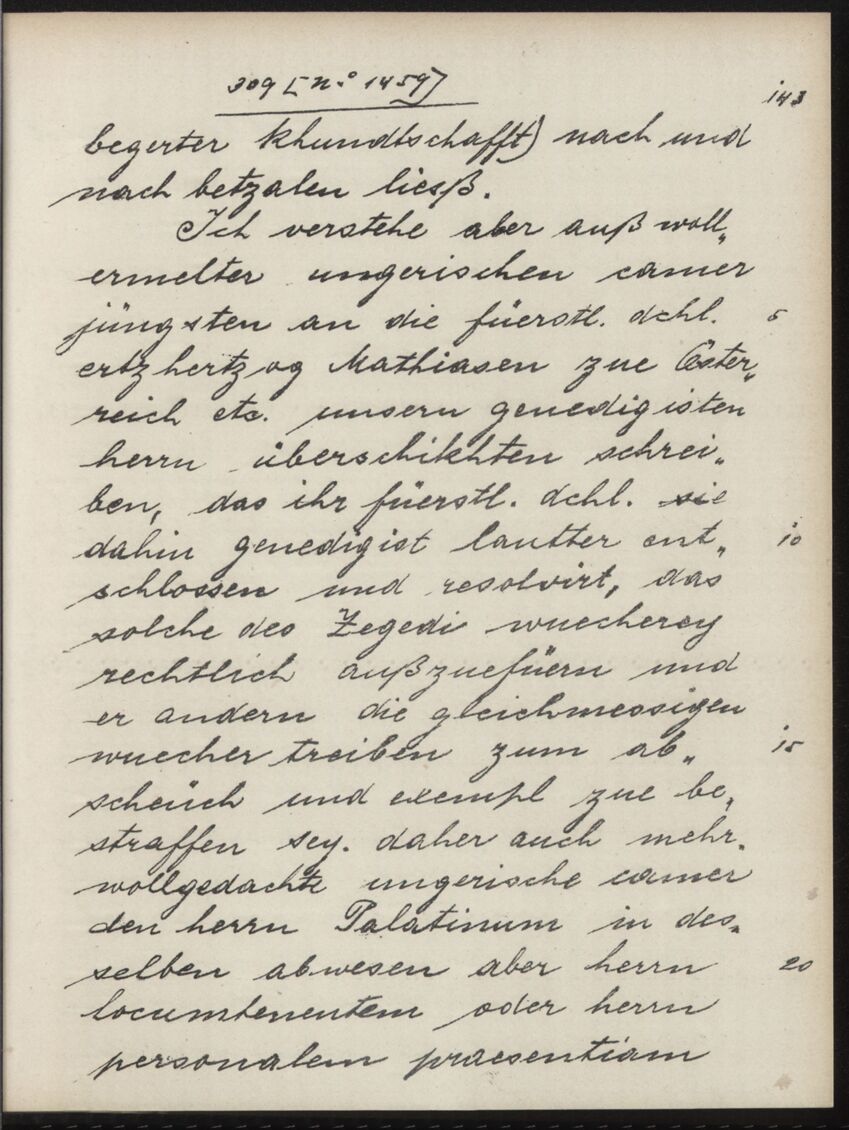 309 [n.° 1459]
143
begerter khundtschafft) nach und
nach betzalen liesß.
Ich verstehe aber auß woll„
ermelter ungerischen camer
jüngsten an die füerstl. dchl. 5
ertzhertzog Mathiasen zue Öster„
reich etc. unsern genedigisten
herrn überschikhten schrei„
ben, das ihr füerstl. dchl. sie
dahin genedigist lautter ent„ 10
schlossen und resolvirt, das
solche des Zegedi wuecherey
rechtlich außzuefüern und
er andern die gleichmessigen
wuecher treiben zum ab„ 15
scheüch und exempl zue be„
straffen sey. daher auch mehr„
wollgedachte ungerische camer
den herrn Palatinum in des„
selben abwesen aber herrn 20
locumtenentem oder herrn
personalem praesentiam